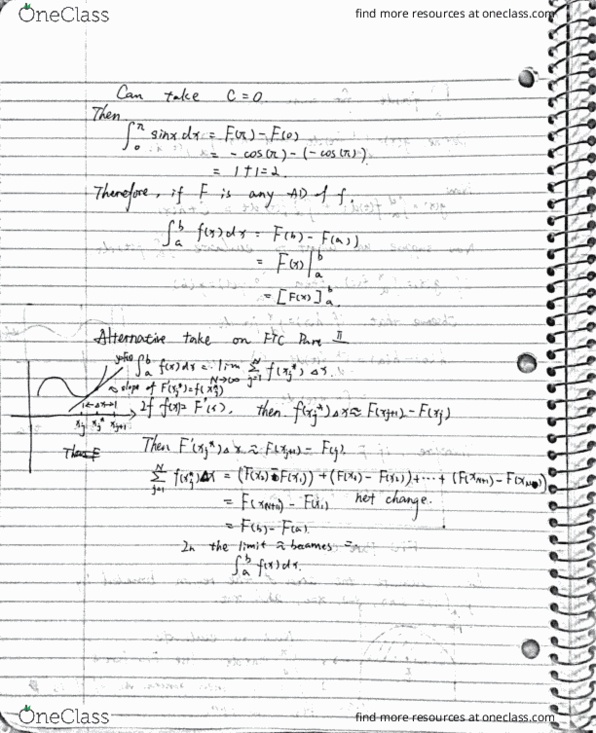 OneClass
find more resources at oneclass.com
Can take C=0.
Then
∫₀^π sinx dx = F(π) - F(0)
= -cos(π) - (-cos(π))
= 1+1=2.
Therefore, if F is any AD of f,
∫ₐᵇ f(x)dx = F(b) - F(a)
= F(x)|ₐᵇ
= [F(x)]ₐᵇ.
Alternative take on FTC Part II
∫ₐᵇ f(x)dx = lim N→∞ Σ j=1 N f(xj*) Δx.
slope of F(xj*)=f(xj*)
←Δx→
xj xj* xj+1
If f(x)= F'(x), then f(xj*)Δx ≈ F(xj+1) - F(xj)
Then F'(xj*)Δx ≈ F(xj+1) - F(xj)
Σ j=1 N f(xj*)Δx = (F(x2) - F(x1)) + (F(x3) - F(x2)) + ··· + (F(xN+1) - F(xN))
= F(xN+1) - F(x1) net change.
= F(b) - F(a).
In the limit ≈ becomes =.
∫ₐᵇ f(x)dx.
OneClass
find more resources at oneclass.com